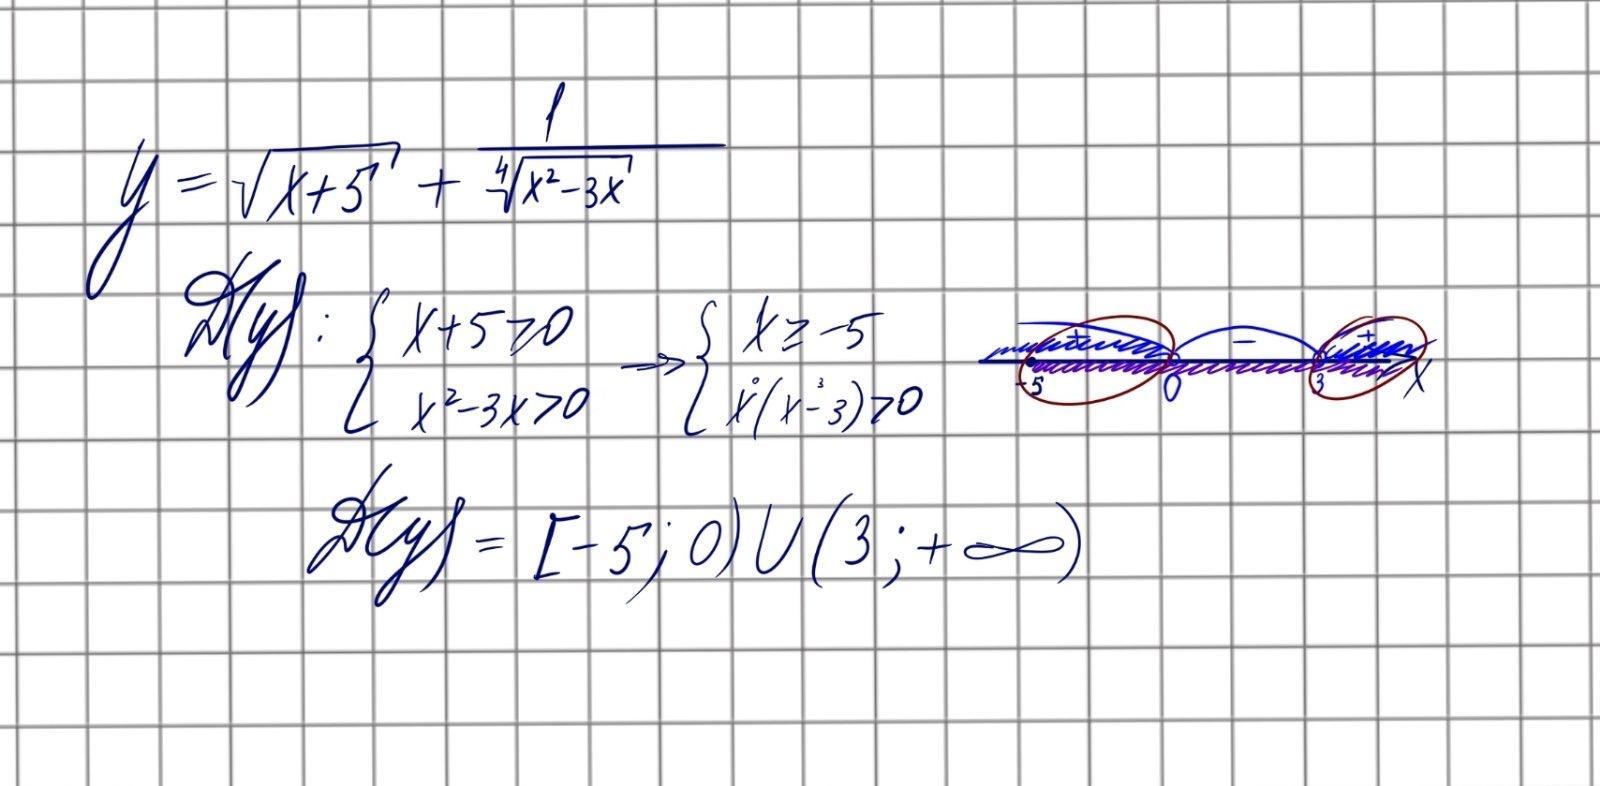 y = √(x+5) + 1/⁴√(x²-3x)
D(y): { x+5≥0 ⇒ { x ≥ -5
x²-3x>0 x(x-3)>0
0 3
+ - +
-5 0 3 x
D(y) = [-5; 0) ∪ (3; +∞)